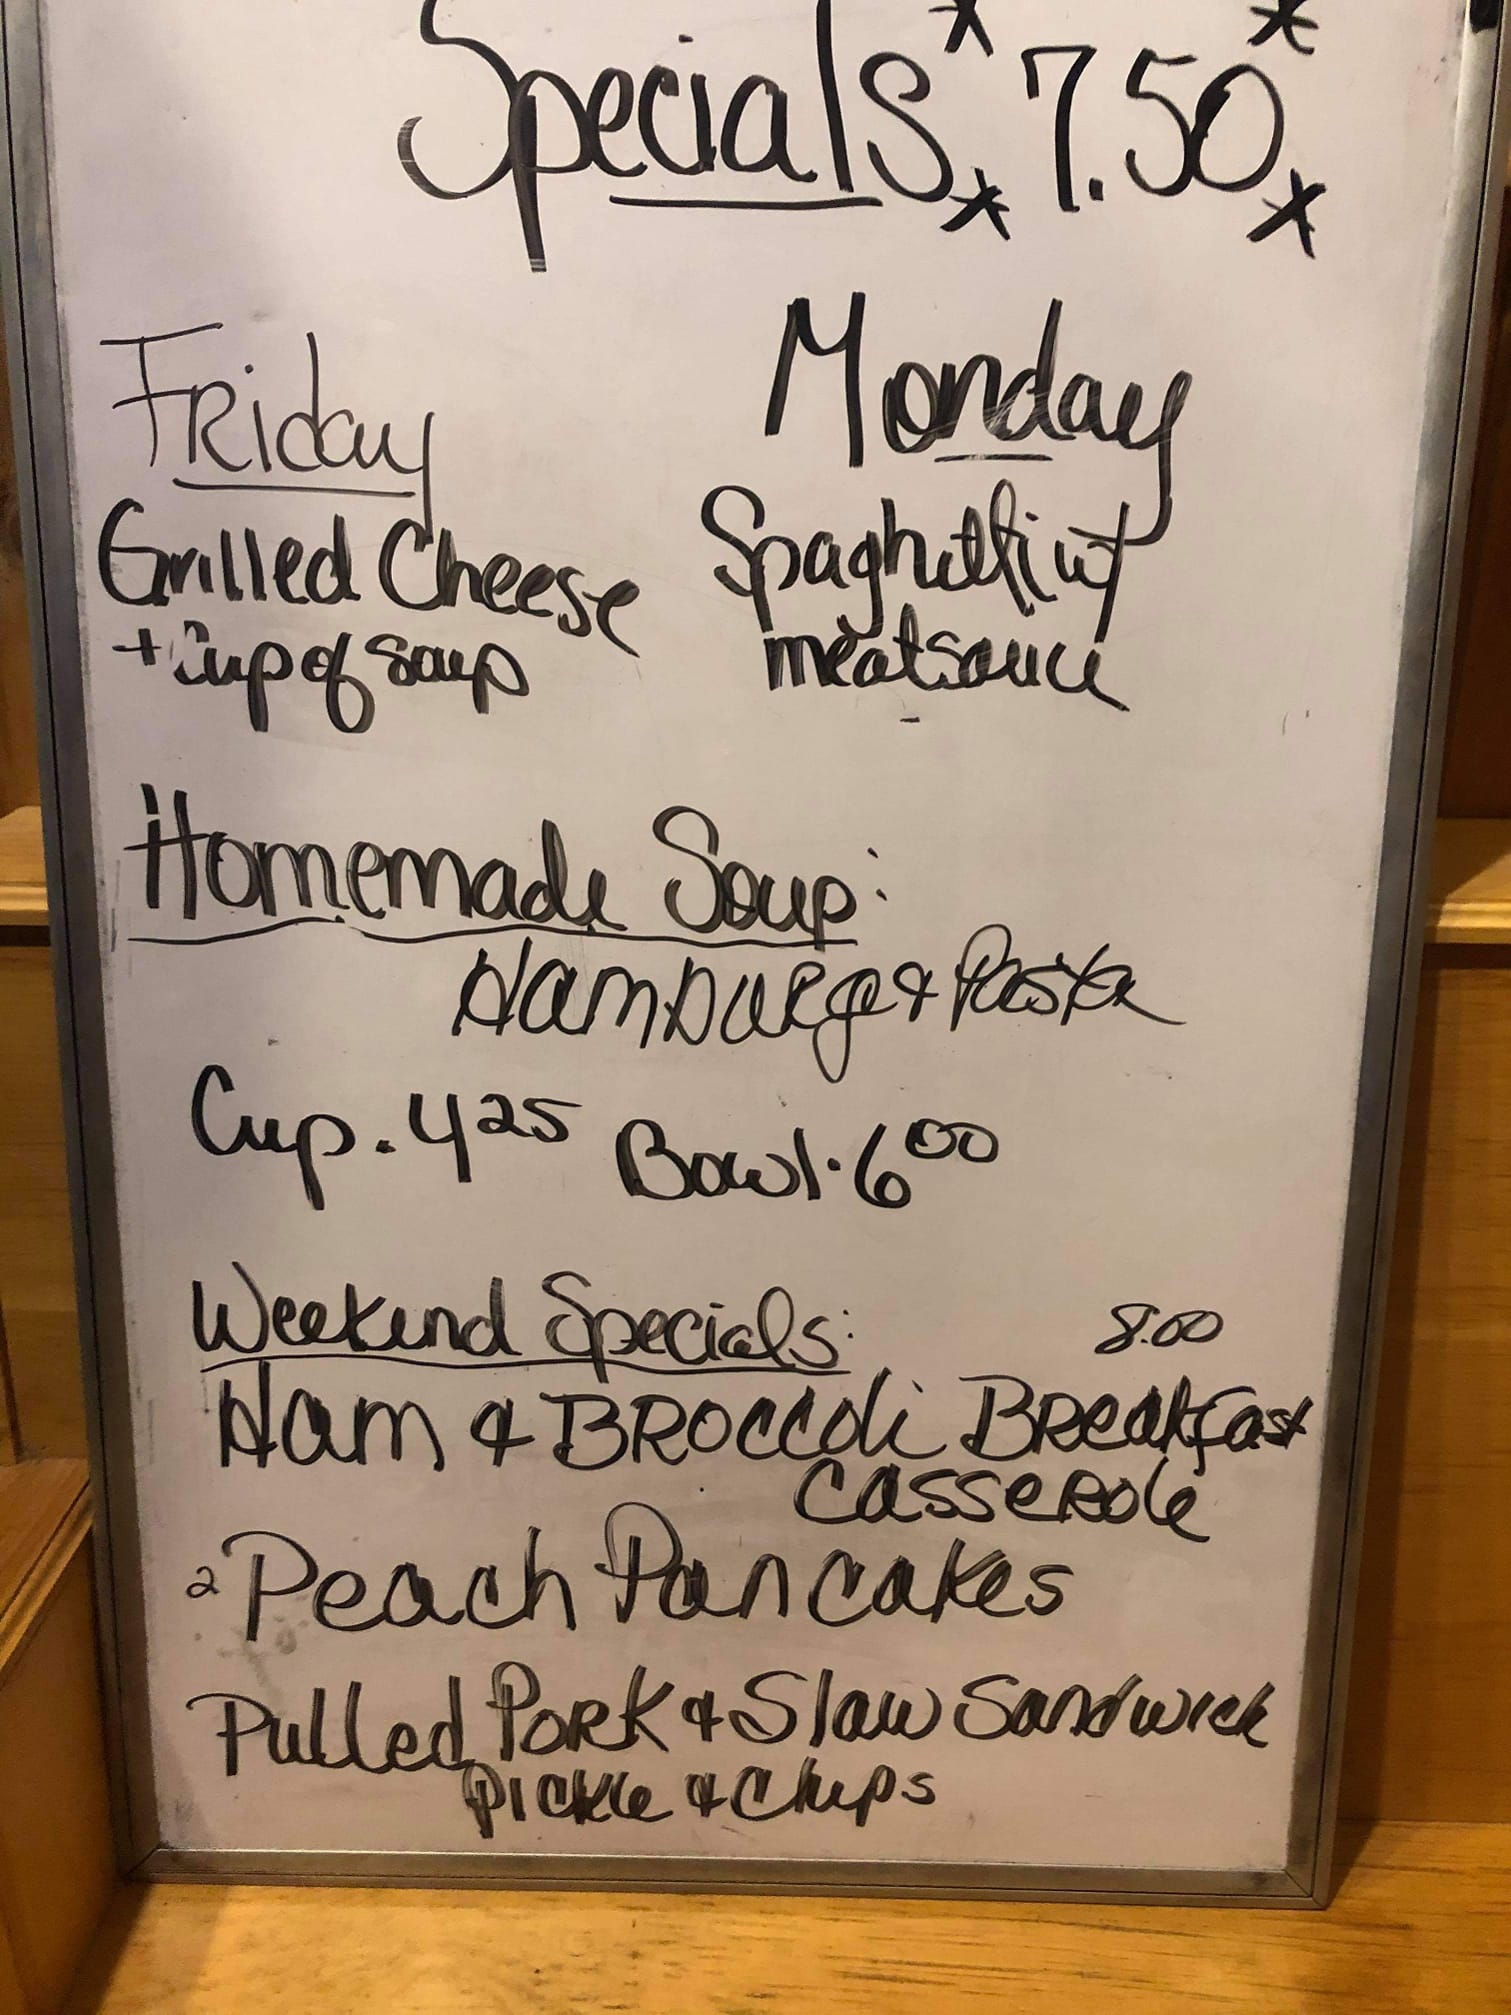 Specials * 7.50 *
* *
Friday
Grilled Cheese
+ Cup of Soup
Monday
Spaghetti w/
meatsauce
Homemade Soup:
Hamburg & Pasta
Cup . 4 25 Bowl . 6 00
Weekend Specials: 8.00
Ham & Broccoli Breakfast
Casserole
2 Peach Pancakes
Pulled Pork & Slaw Sandwich
Pickle & Chips